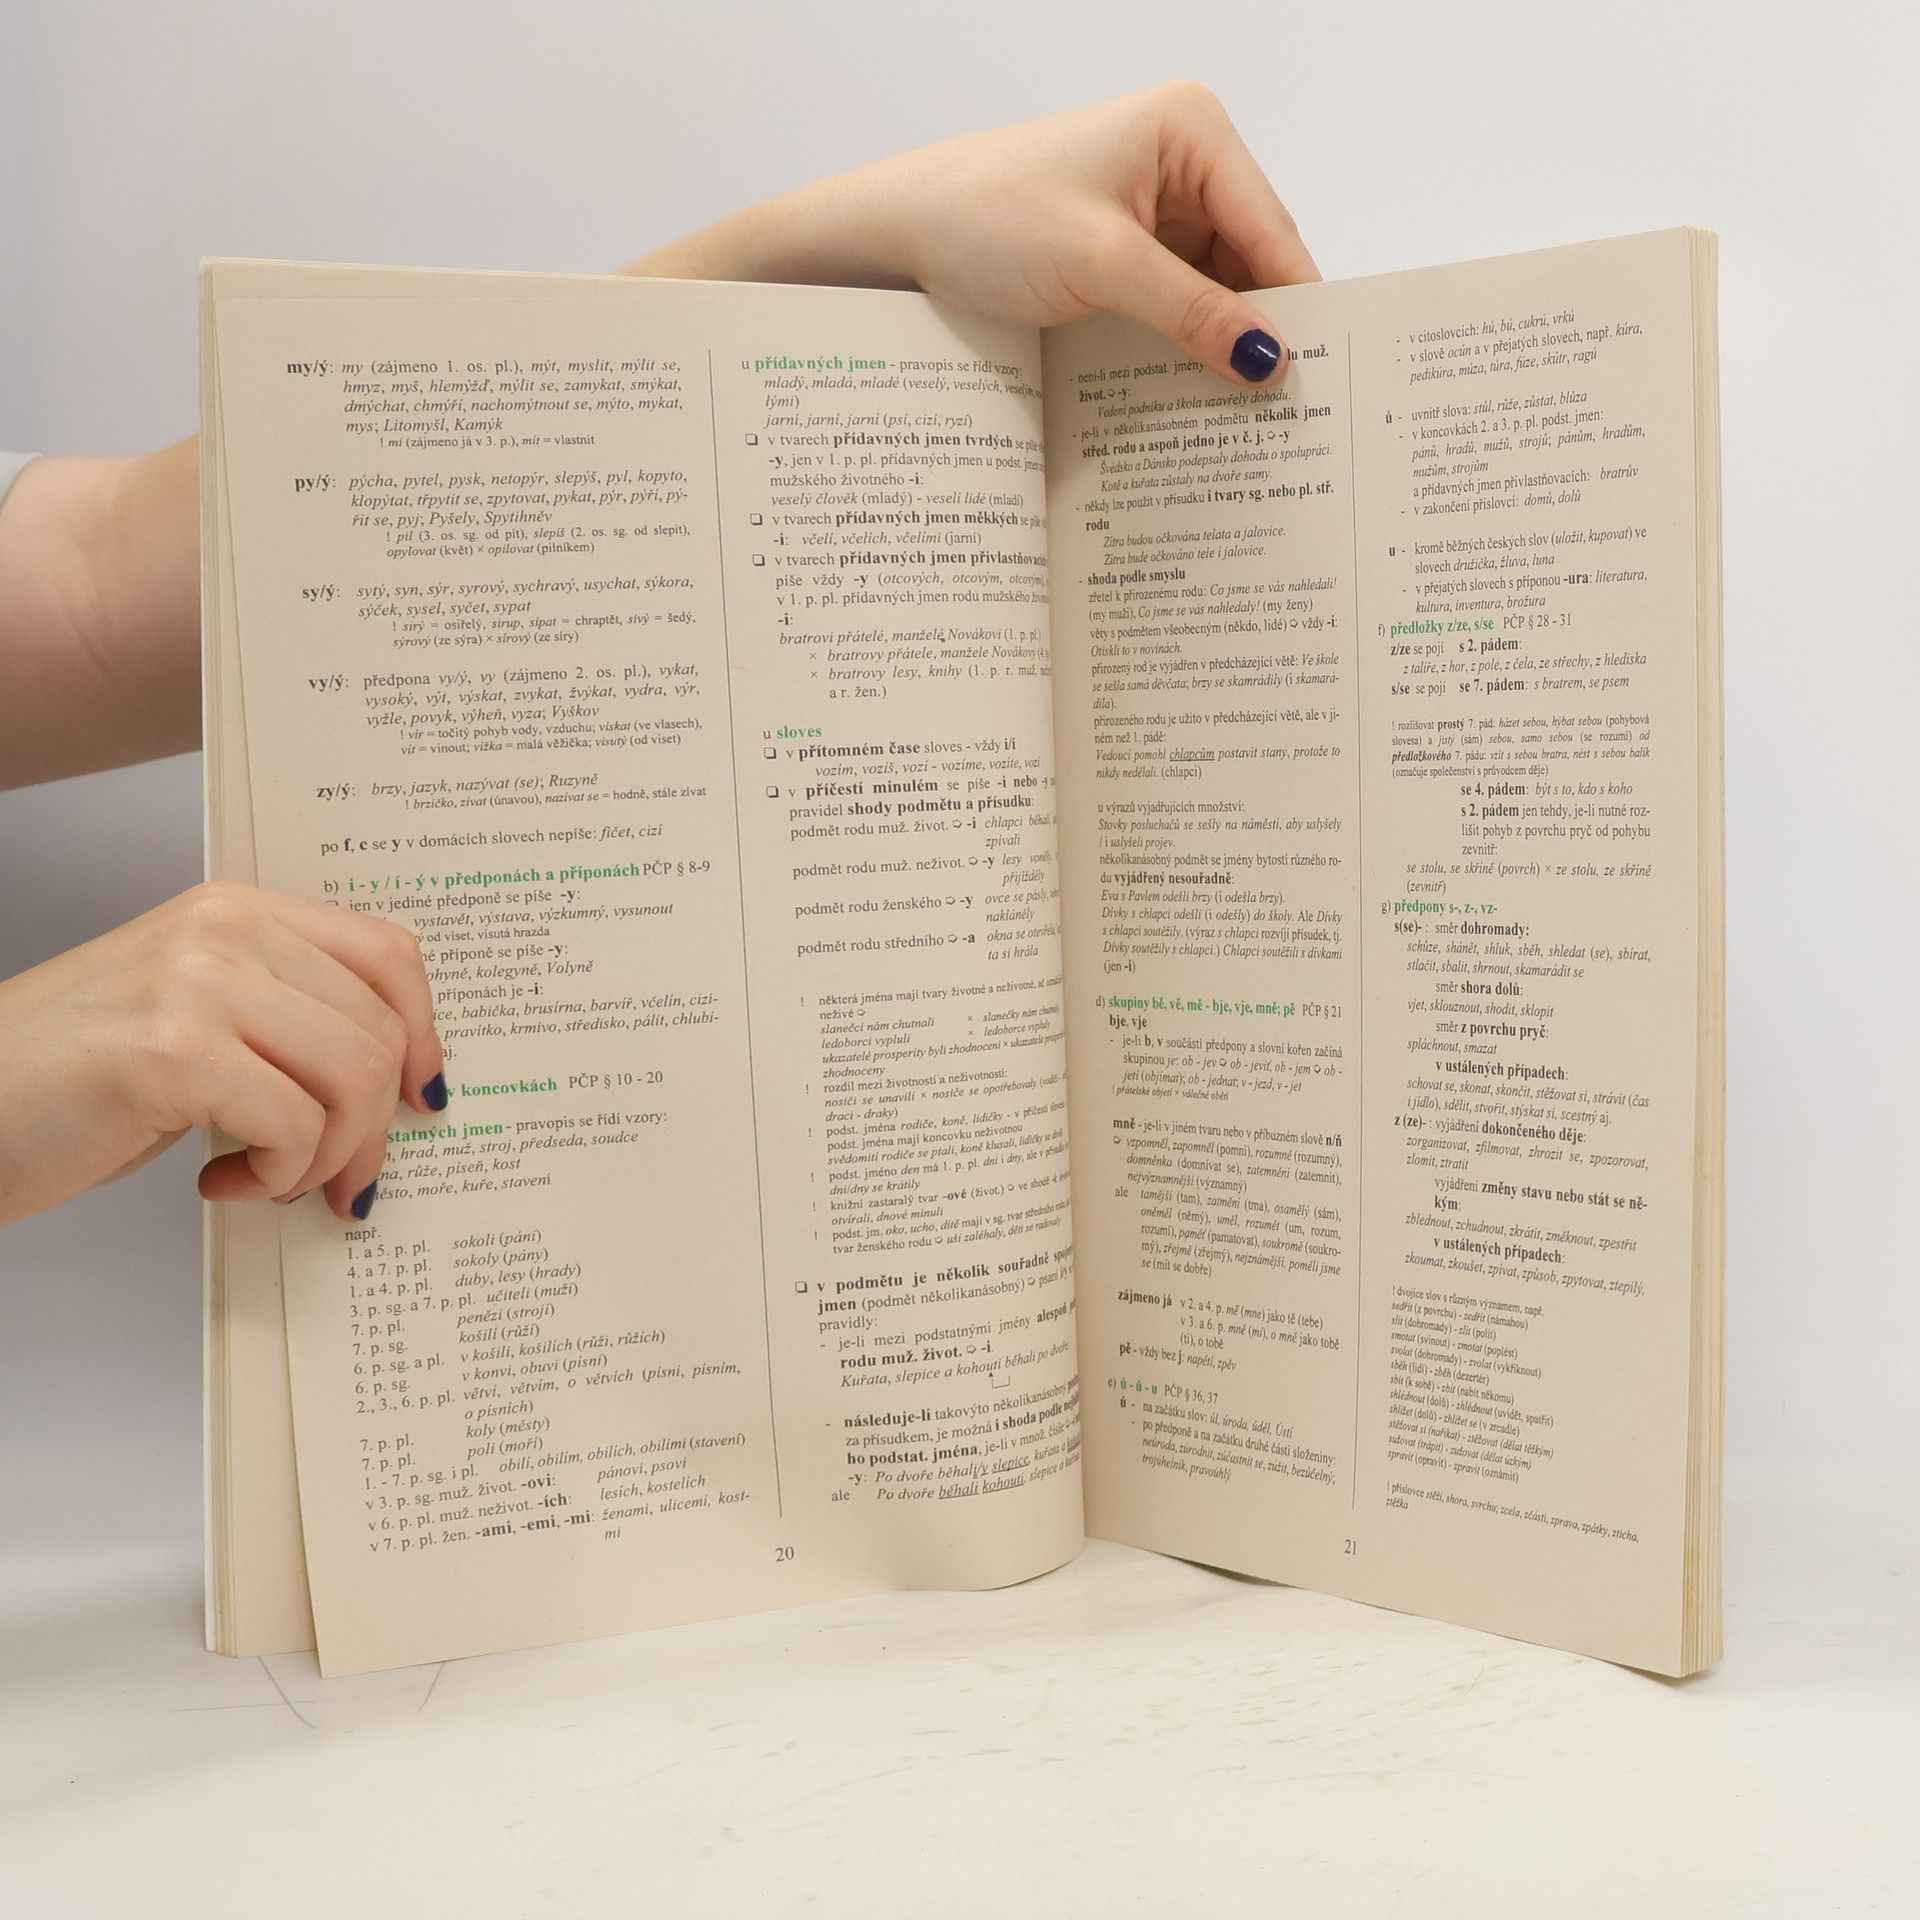 my/ý: my (zájmeno 1. os. pl.), mýt, myslit, mýlit se,
hmyz, myš, hlemýžď, mýlit se, zamykat, smýkat,
dmýchat, chmýří, nachomýtnout se, mýto, mykat,
mys; Litomyšl, Kamýk
! mi (zájmeno já v 3. p.), mít = vlastnit
py/ý: pýcha, pytel, pysk, netopýr, slepýš, pyl, kopyto,
klopýtat, třpytit se, zpytovat, pykat, pýr, pýří, pý-
řit se, pyj; Pyšely, Spytihněv
! pil (3. os. sg. od pít), slepíš (2. os. sg. od slepit),
opylovat (květ) × opilovat (pilníkem)
sy/ý: sytý, syn, sýr, syrový, sychravý, usychat, sýkora,
sýček, sysel, syčet, sypat
! sirý = osiřelý, sirup, sípat = chraptět, sivý = šedý,
sýrový (ze sýra) × sírový (ze síry)
vy/ý: předpona vy/ý, vy (zájmeno 2. os. pl.), vykat,
vysoký, výt, výskat, zvykat, žvýkat, vydra, výr,
vyžle, povyk, výheň, vyza; Vyškov
! vír = točitý pohyb vody, vzduchu; vískat (ve vlasech),
vít = vinout; vížka = malá věžička; visutý (od viset)
zy/ý: brzy, jazyk, nazývat (se); Ruzyně
! brzičko, zívat (únavou), nazívat se = hodně, stále zívat
po f, c se y v domácích slovech nepíše: fičet, cizí
b) i - y / í - ý v předponách a příponách PČP § 8-9
jen v jediné předponě se píše -y:
vystavět, výstava, výzkumný, vysunout
od viset, visutá hrazda
příponě se píše -y:
kolegyně, Volyně
příponách je -i:
babička, brusírna, barvíř, včelín, cizi-
pravítko, krmivo, středisko, pálit, chlubi-
v koncovkách PČP § 10 - 20
- pravopis se řídí vzory:
hrad, muž, stroj, předseda, soudce
růže, píseň, kost
moře, kuře, stavení
např.
1. a 5. p. pl. sokoli (páni)
4. a 7. p. pl. sokoly (pány)
1. a 4. p. pl. duby, lesy (hrady)
3. p. sg. a 7. p. pl. učiteli (muži)
7. p. pl. penězi (stroji)
7. p. sg. košilí (růží)
6. p. sg. a pl. v košili, košilích (růži, růžích)
6. p. sg. v konvi, obuvi (písni)
2., 3., 6. p. pl. větví, větvím, o větvích (písní, písním,
o písních)
7. p. pl. koly (městy)
7. p. pl. poli (moři)
1. - 7. p. sg. i pl. obilí, obilím, obilích, obilími (stavení)
v 3. p. sg. muž. život. -ovi: pánovi, psovi
v 6. p. pl. muž. neživot. -ích: lesích, kostelích
v 7. p. pl. žen. -ami, -emi, -mi: ženami, ulicemi, kost-
mi
u přídavných jmen - pravopis se řídí vzory:
mladý, mladá, mladé (veselý, veselých,
lými)
jarní, jarní, jarní (psí, cizí, ryzí)
❏ v tvarech přídavných jmen tvrdých se píše
-y, jen v 1. p. pl. přídavných jmen u podst. jmen
mužského životného -i:
veselý člověk (mladý) - veselí lidé (mladí)
❏ v tvarech přídavných jmen měkkých se píše
-i: včelí, včelích, včelími (jarní)
❏ v tvarech přídavných jmen přivlastňovacích
píše vždy -y (otcových, otcovým, otcovými),
v 1. p. pl. přídavných jmen rodu mužského
-i:
bratrovi přátelé, manželé Novákovi (1. p. pl.)
× bratrovy přátele, manžele Novákovy
× bratrovy lesy, knihy (1. p. r. muž.
a r. žen.)
u sloves
❏ v přítomném čase sloves - vždy i/í
vozím, vozíš, vozí - vozíme, vozíte, vozí
❏ v příčestí minulém se píše -i nebo -y
pravidel shody podmětu a přísudku:
podmět rodu muž. život. ➪ -i chlapci běhali,
zpívali
podmět rodu muž. neživot. ➪ -y lesy voněly,
přijížděly
podmět rodu ženského ➪ -y ovce se pásly,
nakláněly
podmět rodu středního ➪ -a okna se otevřela,
ta si hrála
! některá jména mají tvary životné a neživotné, ač
neživé ➪
slanečci nám chutnali × slanečky nám chutnaly
ledoborci vypluli × ledoborce vypluly
ukazatelé prosperity byli zhodnoceni × ukazatele
zhodnoceny
! rozdíl mezi životností a neživotností:
nosiči se unavili × nosiče se opotřebovaly
draci - draky)
! podst. jména rodiče, koně, lidičky - v příčestí
podst. jména mají koncovku neživotnou
svědomití rodiče se ptali, koně klusali, lidičky se
! podst. jméno den má 1. p. pl. dni i dny, ale v
dni/dny se krátily
! knižní zastaralý tvar -ové (život.) ➪ ve shodě
otvírali, dnové minuli
! podst. jm. oko, ucho, dítě mají v sg. tvar středního
tvar ženského rodu ➪ uši zaléhaly, děti se radovaly
❏ v podmětu je několik souřadně
jmen (podmět několikanásobný) ➪ psaní
pravidly:
- je-li mezi podstatnými jmény alespoň
rodu muž. život. ➪ -i.
Kuřata, slepice a kohouti běhali po dvoře.
- následuje-li takovýto několikanásobný
za přísudkem, je možná i shoda podle
ho podstat. jména, je-li v množ. čísle
-y: Po dvoře běhali/y slepice, kuřata a
ale Po dvoře běhali kohouti, slepice a
20
- není-li mezi podstat. jmény lu muž.
život. ➪ -y:
Vedení podniku a škola uzavřely dohodu.
- je-li v několikanásobném podmětu několik jmen
střed. rodu a aspoň jedno je v č. j. ➪ -y
Švédsko a Dánsko podepsaly dohodu o spolupráci.
Kotě a kuřata zůstaly na dvoře samy.
- někdy lze použít v přísudku i tvary sg. nebo pl. stř.
rodu
Zítra budou očkována telata a jalovice.
Zítra bude očkováno tele i jalovice.
- shoda podle smyslu
zřetel k přirozenému rodu: Co jsme se vás nahledali!
(my muži), Co jsme se vás nahledaly! (my ženy)
věty s podmětem všeobecným (někdo, lidé) ➪ vždy -i:
Otiskli to v novinách.
přirozený rod je vyjádřen v předcházející větě: Ve škole
se sešla samá děvčata; brzy se skamrádily (i skamará-
dila).
přirozeného rodu je užito v předcházející větě, ale v ji-
ném než 1. pádě:
Vedoucí pomohl chlapcům postavit stany, protože to
nikdy nedělali. (chlapci)
u výrazů vyjadřujících množství:
Stovky posluchačů se sešly na náměstí, aby uslyšely
/ i uslyšeli projev.
několikanásobný podmět se jmény bytostí různého ro-
du vyjádřený nesouřadně:
Eva s Pavlem odešli brzy (i odešla brzy).
Dívky s chlapci odešli (i odešly) do školy. Ale Dívky
s chlapci soutěžily. (výraz s chlapci rozvíjí přísudek, tj.
Dívky soutěžily s chlapci.) Chlapci soutěžili s dívkami
(jen -i)
d) skupiny bě, vě, mě - bje, vje, mně; pě PČP § 21
bje, vje
- je-li b, v součástí předpony a slovní kořen začíná
skupinou je: ob - jev ➪ ob - jevit, ob - jem ➪ ob -
jetí (objímat); ob - jednat; v - jezd, v - jet
! přátelské objetí × válečné oběti
mně - je-li v jiném tvaru nebo v příbuzném slově n/ň
➪ vzpomněl, zapomněl (pomni), rozumně (rozumný),
domněnka (domnívat se), zatemnění (zatemnit),
nejvýznamnější (významný)
ale tamější (tam), zatmění (tma), osamělý (sám),
oněměl (němý), uměl, rozumět (um, rozum,
rozumí), paměť (pamatovat), soukromě (soukro-
mý), zřejmě (zřejmý), nejznámější, poměli jsme
se (mít se dobře)
zájmeno já v 2. a 4. p. mě (mne) jako tě (tebe)
v 3. a 6. p. mně (mi), o mně jako tobě
(ti), o tobě
pě - vždy bez j: napětí, zpěv
e) ú - ů - u PČP § 36, 37
ú - na začátku slov: úl, úroda, úděl, Ústí
- po předponě a na začátku druhé části složeniny:
neúroda, zúrodnit, zúčastnit se, zúžit, bezúčelný;
trojúhelník, pravoúhlý
- v citoslovcích: hú, bú, cukrú, vrkú
- v slově ocún a v přejatých slovech, např. kúra,
pedikúra, múza, túra, fúze, skútr, ragú
ů - uvnitř slova: stůl, růže, zůstat, blůza
- v koncovkách 2. a 3. p. pl. podst. jmen:
pánů, hradů, mužů, strojů; pánům, hradům,
mužům, strojům
a přídavných jmen přivlastňovacích: bratrův
- v zakončení příslovcí: domů, dolů
u - kromě běžných českých slov (uložit, kupovat) ve
slovech družička, žluva, luna
- v přejatých slovech s příponou -ura: literatura,
kultura, inventura, brožura
f) předložky z/ze, s/se PČP § 28 - 31
z/ze se pojí s 2. pádem:
z talíře, z hor, z pole, z čela, ze střechy, z hlediska
s/se se pojí se 7. pádem: s bratrem, se psem
! rozlišovat prostý 7. pád: házet sebou, hýbat sebou (pohybová
slovesa) a jistý (sám) sebou, samo sebou (se rozumí) od
předložkového 7. pádu: vzít s sebou bratra, nést s sebou balík
(označuje společenství s průvodcem děje)
se 4. pádem: být s to, kdo s koho
s 2. pádem jen tehdy, je-li nutné roz-
lišit pohyb z povrchu pryč od pohybu
zevnitř:
se stolu, se skříně (povrch) × ze stolu, ze skříně
(zevnitř)
g) předpony s-, z-, vz-
s(se)- : směr dohromady:
schůze, shánět, shluk, sběh, shledat (se), sbírat,
stlačit, sbalit, shrnout, skamarádit se
směr shora dolů:
vjet, sklouznout, shodit, sklopit
směr z povrchu pryč:
spláchnout, smazat
v ustálených případech:
schovat se, skonat, skončit, stěžovat si, strávit (čas
i jídlo), sdělit, stvořit, stýskat si, scestný aj.
z (ze)- : vyjádření dokončeného děje:
zorganizovat, zfilmovat, zhrozit se, zpozorovat,
zlomit, ztratit
vyjádření změny stavu nebo stát se ně-
kým:
zblednout, zchudnout, zkrátit, změknout, zpestřit
v ustálených případech:
zkoumat, zkoušet, zpívat, způsob, zpytovat, ztepilý,
! dvojice slov s různým významem, např.
sedřít (z povrchu) - zedřít (námahou)
slít (dohromady) - zlít (polít)
smotat (svinout) - zmotat (poplést)
svolat (dohromady) - zvolat (vykřiknout)
sběh (lidí) - zběh (dezertér)
sbít (k sobě) - zbít (nabít někomu)
shlédnout (dolů) - zhlédnout (uvidět, spatřit)
shlížet (dolů) - zhlížet se (v zrcadle)
stěžovat si (naříkat) - ztěžovat (dělat těžkým)
sužovat (trápit) - zužovat (dělat úzkým)
spravit (opravit) - zpravit (oznámit)
! příslovce stěží, shora, svrchu, zcela, zčásti, zprava, zpátky, zticha,
ztěžka
21